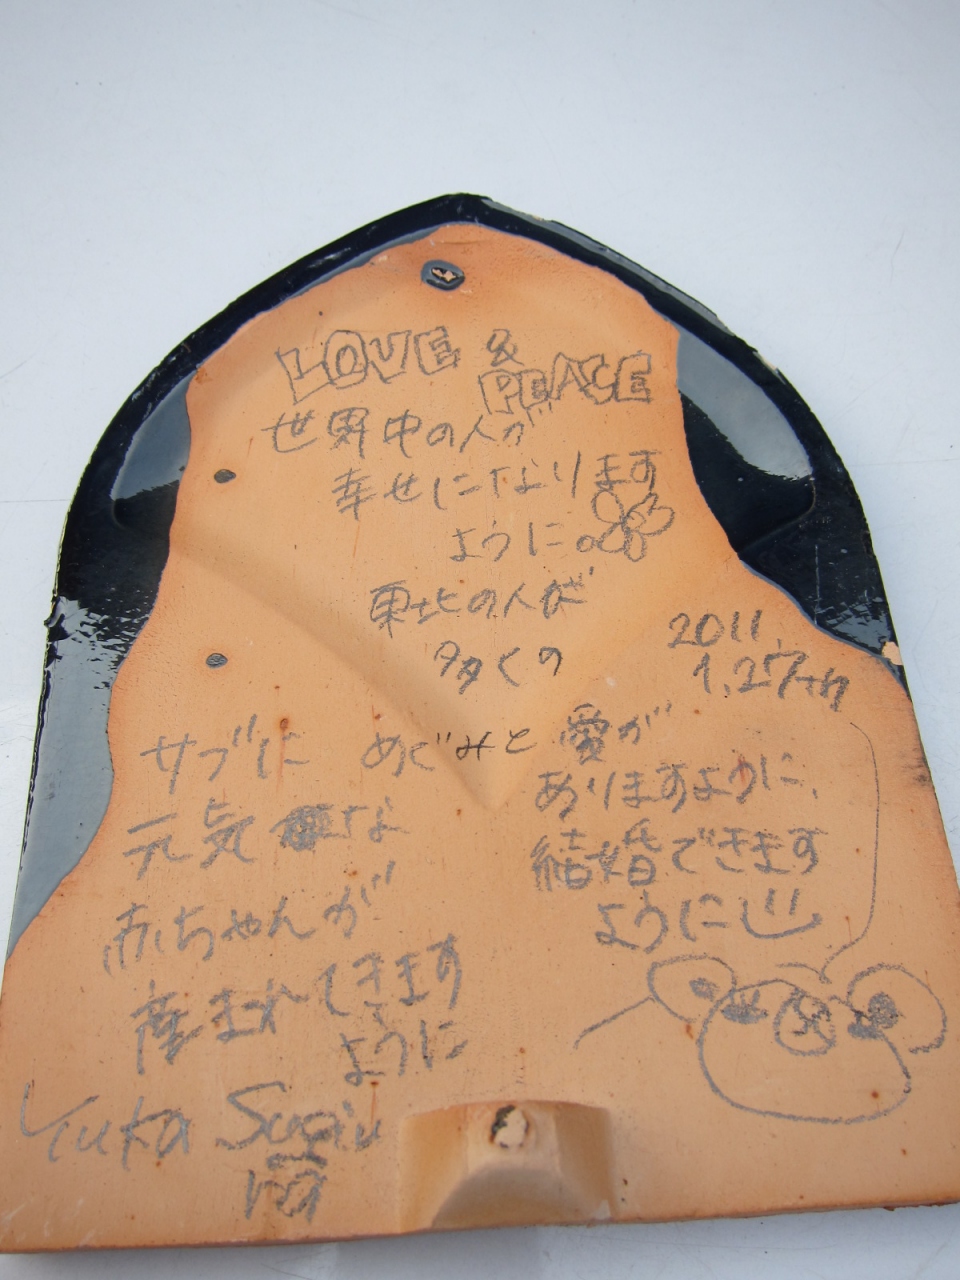 LOVE &
PEACE
世界中の人が
幸せになります
ように。
東北の人が
多くの
2011.
サブに
めぐみと
愛が
元気な
ありますように、
赤ちゃんが
結婚できます
ように
できます
ように
Yuka